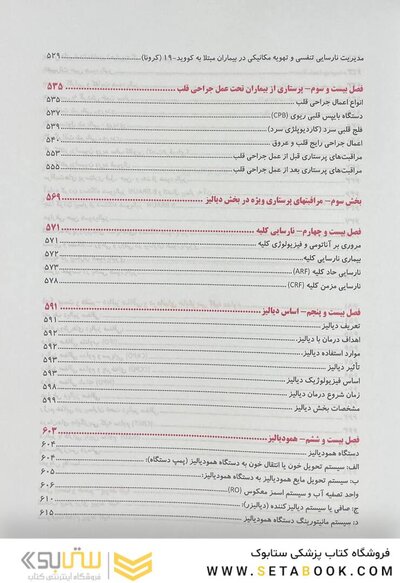 مدیریت نارسایی تنفسی و تهویه مکانیکی در بیماران مبتلا به کووید-۱۹ (کرونا) ۵۲۹
فصل بیست و سوم- پرستاری از بیماران تحت عمل جراحی قلب ۵۳۵
انواع اعمال جراحی قلب ۵۳۵
دستگاه بایپس قلبی ریوی (CPB) ۵۳۷
فلج قلبی سرد (کاردیوپلژی سرد) ۵۳۹
اعمال جراحی رایج قلب و عروق ۵۴۰
مراقبت‌های پرستاری قبل از عمل جراحی قلب ۵۵۳
مراقبت‌های پرستاری بعد از عمل جراحی قلب ۵۵۵
بخش سوم- مراقبتهای پرستاری ویژه در بخش دیالیز ۵۶۹
فصل بیست و چهارم- نارسایی کلیه ۵۷۱
مروری بر آناتومی و فیزیولوژی کلیه ۵۷۱
بیماری نارسایی کلیه ۵۷۲
نارسایی حاد کلیه (ARF) ۵۷۳
نارسایی مزمن کلیه (CRF) ۵۷۸
فصل بیست و پنجم- اساس دیالیز ۵۹۱
تعریف دیالیز ۵۹۱
اهداف درمان با دیالیز ۵۹۲
موارد استفاده دیالیز ۵۹۲
تأثیر دیالیز ۵۹۳
اساس فیزیولوژیک دیالیز ۵۹۳
زمان شروع درمان دیالیز ۵۹۸
مشخصات بخش دیالیز ۵۹۹
فصل بیست و ششم- همودیالیز ۶۰۳
دستگاه همودیالیز ۶۰۴
الف: سیستم تحویل خون یا انتقال خون به دستگاه همودیالیز (پمپ دستگاه): ۶۰۴
ب: سیستم تحویل مایع همودیالیز به دستگاه همودیالیز: ۶۰۵
واحد تصفیه آب و سیستم اسمز معکوس (RO) ۶۰۶
ج: صافی یا سیستم دیالیز کننده (دیالیزر): ۶۱۰
د: سیستم مانیتورینگ دستگاه همودیالیز ۶۱۵
فروشگاه کتاب پزشکی ستابوک
WWW.SETABOOK.COM
ستابوک
فروشگاه اینترنتی کتاب